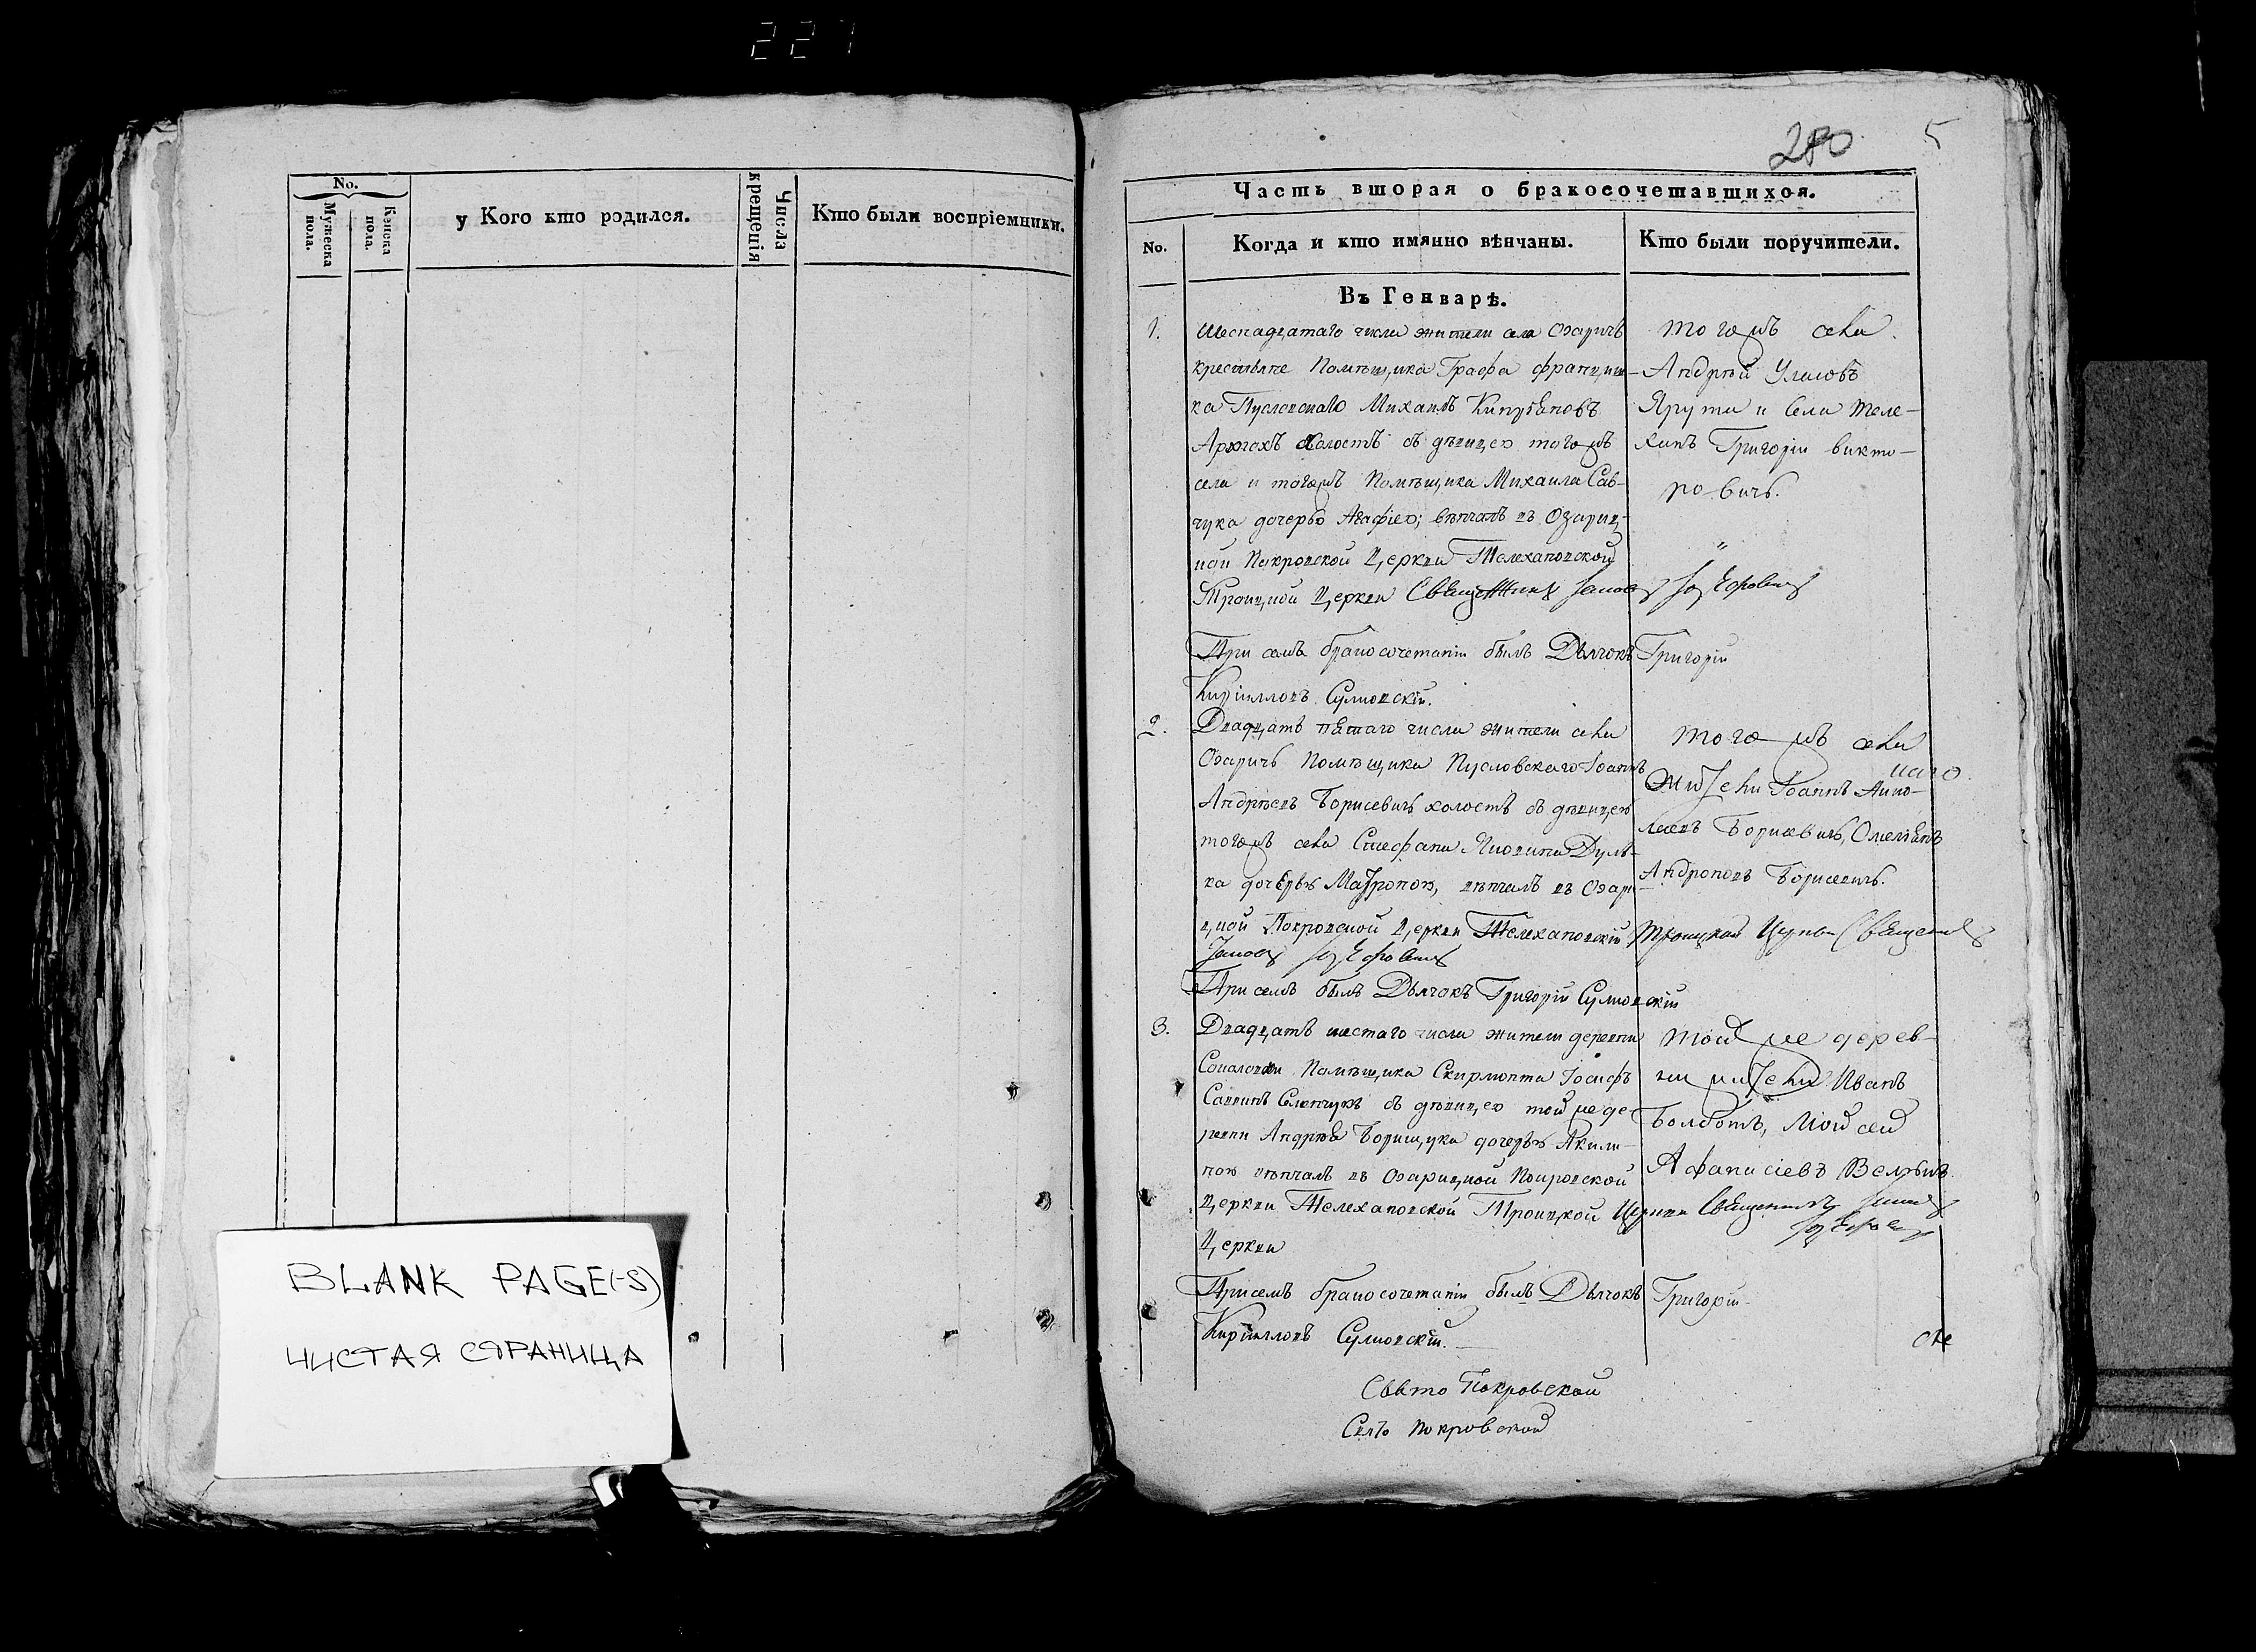 227
No.
Мужеска пола.
Женска пола.
у Кого кто родился.
Числа крещенія
Кто были воспріемники.
BLANK PAGE(-S)
ЧИСТАЯ СТРАНИЦА
280 5
Часть вторая о бракосочетавшихся.
No.
Когда и кто имянно вѣнчаны.
Кто были поручители.
Въ Генварѣ.
1.
Шеснадцатаго числа жители села Озаричъ
крестьяне Помѣщика Графа Франциш-
ка Пусловскаго Михаилъ Кипріяновъ
холостъ съ дѣвицею тогожъ
села и тогожъ Помѣщика Михаила Сав-
чука дочерью Агафіею; вѣнчалъ въ Озариц-
кой Покровской Церкви Телехановской
Троицкой Церкви Священникъ
При семъ бракосочетаніи былъ Дьячокъ Григорій
Кирилловъ Сулковскій.
тогожъ села
Андрей
Ярута и Села Теле-
ханъ Григорій Викто-
ровичъ.
2.
Двадцать пятаго числа жители села
Озаричъ Помѣщика Пусловскаго Іоаннъ
Андреевъ Борисевичъ холостъ съ дѣвицею
тогожъ села Стефана Дуль-
ка дочерью Матроною, вѣнчалъ въ Озари-
цкой Покровской Церкви Телехановскій Троицкой Церкви Священникъ
При семъ былъ Дьячокъ Григорій Сулковскій
тогожъ села
жители Іоаннъ
Борисевичъ, Омельянъ
Андроновъ Борисевичъ.
3.
Двадцать шестаго числа жители деревни
Помѣщика Скирмонта Іосифъ
Саввинъ съ дѣвицею тойже де-
ревни Андрея Борищука дочерью Акили-
ною вѣнчалъ въ Озарицкой Покровской
Церкви Телехановской Троицкой Церкви Священникъ
Церкви
При семъ бракосочетаніи былъ Дьячокъ Григорій
Кирилловъ Сулковскій.
тойже дерев-
ни жители Иванъ
Болботъ, Мойсей
Афанасіевъ
Свято Покровской
Свято Покровской